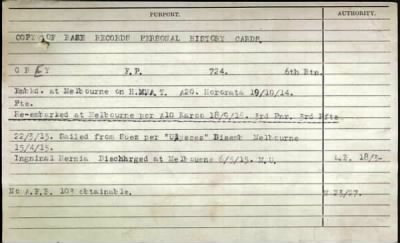 PURPORT. AUTHORITY.
COPY OF BASE RECORDS PERSONAL HISTORY CARDS.
GREY F.P. 724. 6th Btn.
Embkd. at Melbourne on H.M.A.T. A20. Hororata 19/10/14.
Pte.
Re-embarked at Melbourne per A10 Karoo 18/9/16. 3rd Pnr. 3rd Rfts
22/3/15. Sailed from Suez per "Ulysses" Disemb Melbourne
15/4/15.
Inguinal Hernia Dischharged at Melbourne 6/5/15. M.U.
No A.F.B. 103 obtainable.